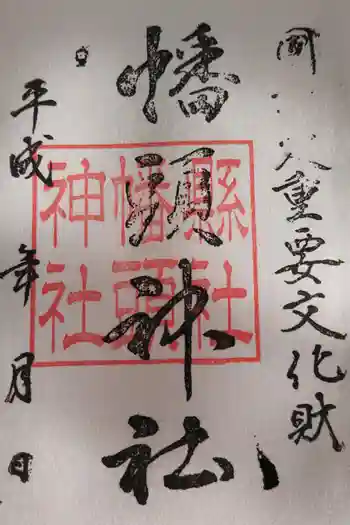 国指定重要文化財
幡頭神社
縣社
幡頭
神社
平成 年 月 日